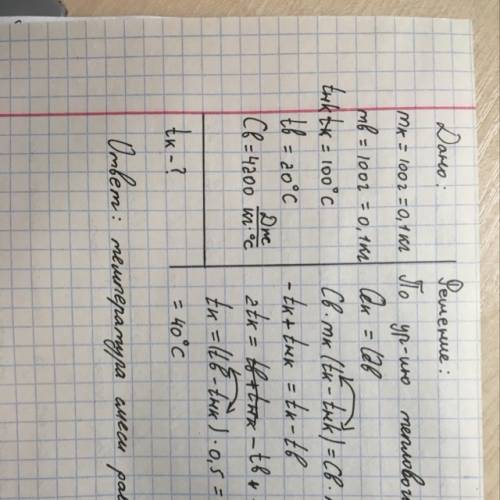 Дано:
mк = 100г = 0,1 кг
mв = 100г = 0,1 кг
tнк = 100°C
tв = 20°C
Cв = 4200 Дж/кг·°C
tк - ?
Решение:
По ур-ию теплового
Qк = Qв
Cв · mк (tк - tнк) = Cв ·
-tк + tнк = tк - tв
2tк =
tк = (tв - tнк) · 0,5 =
= 40°C
Ответ: температура смеси